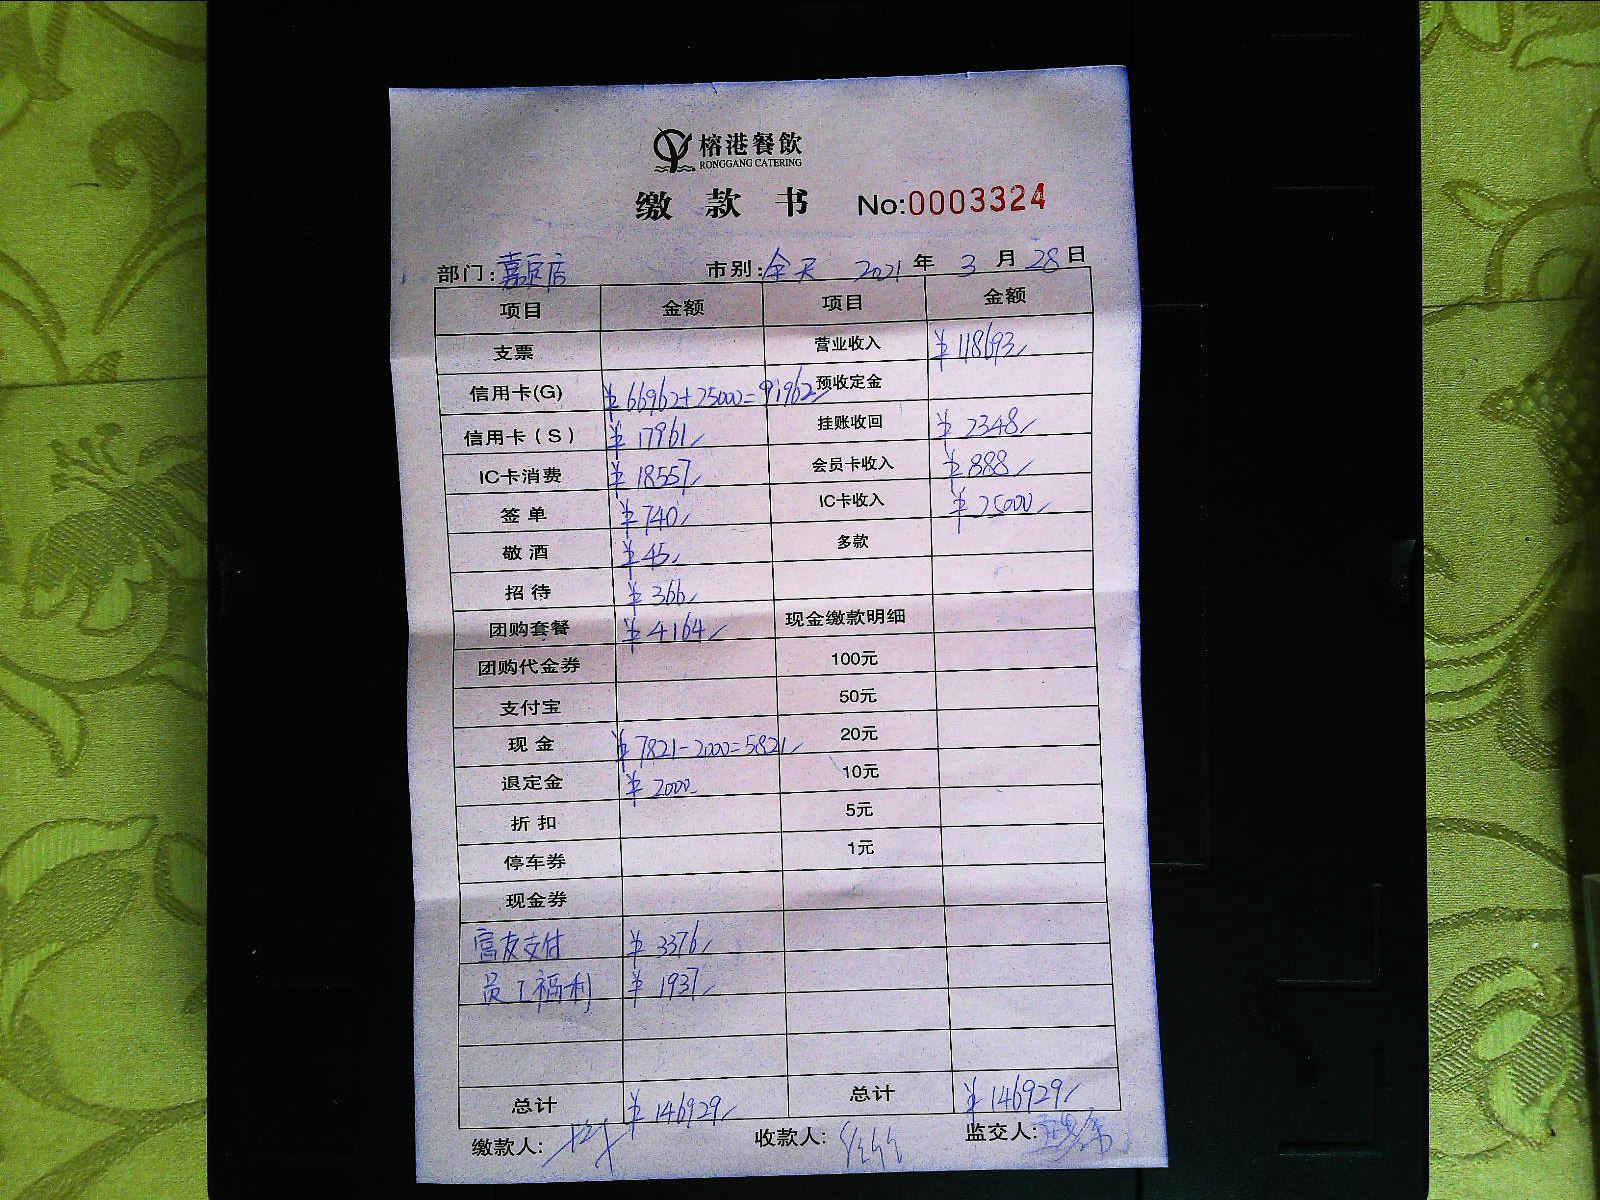 榕港餐飲
RONGGANG CATERING
缴款书 No:0003324
部门:嘉定店 市别:全天 2021年3月28日
项目 金额 项目 金额
支票 营业收入 ¥118693
信用卡(G) ¥66962+25000=91962 预收定金
信用卡(S) ¥17961 挂账收回 ¥2348
IC卡消费 ¥18557 会员卡收入 ¥888
签单 ¥740 IC卡收入 ¥25000
敬酒 ¥45 多款
招待 ¥366
团购套餐 ¥4164 现金缴款明细
团购代金券 100元
支付宝 50元
现金 ¥7821-2000=5821 20元
退定金 ¥2000 10元
折扣 5元
停车券 1元
现金券
富友支付 ¥3376
员工福利 ¥1937
总计 ¥146929 总计 ¥146929
缴款人: 收款人: 监交人: